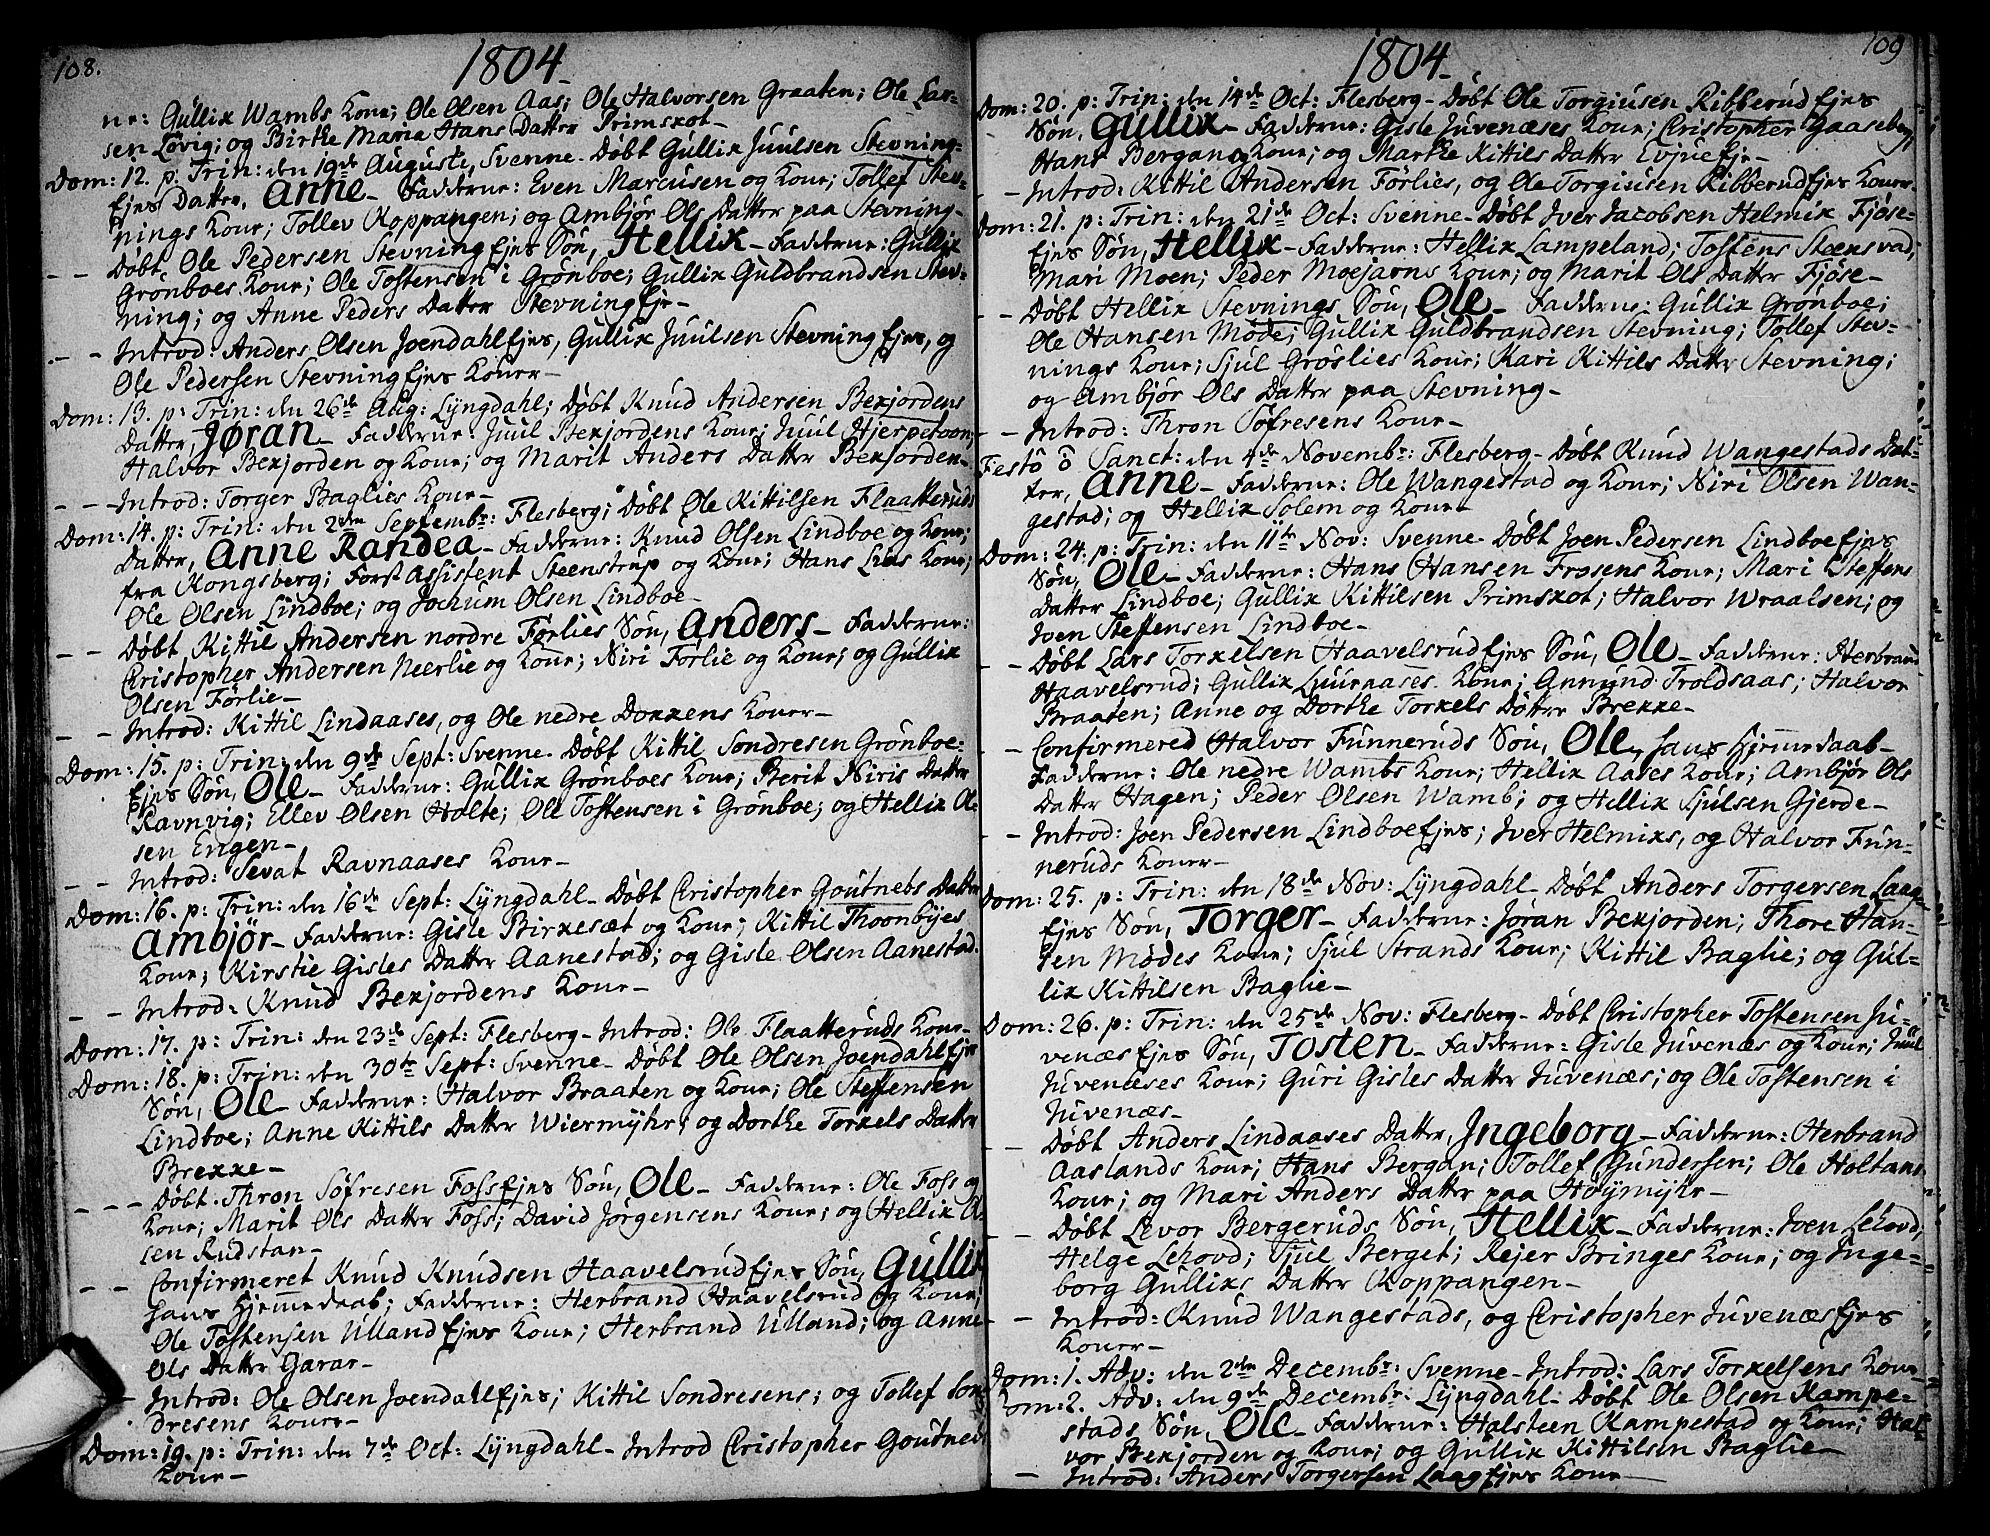 108.
1804
ne: Gullix Wambs Kone; Ole Olsen Aas; Ole Halvorsen Graaten; Ole Lar=
sen Løvig; og Birthe Maria Hans Datter Primskot_
Dom: 12. p: Trin: den 19de Auguste, Svenne_ Døbt Gullix Juulsen Stevning=
Ejes Datter, Anne_ Fadderne: Even Marcusen og Kone; Tollef Stev=
nings Kone; Tollev Koppangen; og Ambjør Ols Datter paa Stevning_
_ _ Døbt Ole Pedersen StevningEjes Søn, Hellix_ Fadderne: Gullix
Grønboes Kone; Ole Tostensen i Grønboe; Gullix Guldbrandsen Stev=
ning; og Anne Peders Datter StevningEje_
_ _ Introd: Anders Olsen JoendahlEjes, Gullix Juulsen StevningEjes, og
Ole Pedersen StevningEjes Koner_
Dom: 13. p: Trin: den 26de Aug: Lyngdahl; Døbt Knud Andersen Bexjordens
Datter, Jøran_ Fadderne: Juul Bexjordens Kone; Juul Hjerpetoon;
Halvor Bexjorden og Kone; og Marit Anders Datter Bexjorden_
_ _ _ Introd: Torger Baglies Kone_
Dom: 14. p: Trin: den 2den Septembr: Flesberg; Døbt Ole Kittilsen Flaatteruds
Datter, Anne Randea_ Fadderne: Knud Olsen Lindboe og Kone;
fra Kongsberg; Forst Assistent Steenstrup og Kone; Hans Lies Kone;
Ole Olsen Lindboe; og Jochum Olsen Lindboe_
_ _ Døbt Kittil Andersen nordre Førlies Søn, Anders_ Fadderne:
Christopher Andersen Neerlie og Kone; Niri Førlie og Kone; og Gullix
Olsen Førlie_
_ _ Introd: Kittil Lindaases, og Ole nedre Doxxens Koner_
Dom: 15. p: Trin: den 9de Sept: Svenne_ Døbt Kittil Sondresen Grønboe=
Ejes Søn, Ole_ Fadderne: Gullix Grønboes Kone; Berit Niris Datter
Ravnvig; Ellev Olsen Holte; Ole Tostensen i Grønboe; og Hellix Ole
sen Engen_
_ _ Introd: Sevat Ravnaases Kone_
Dom: 16. p: Trin: den 16de Sept: Lyngdahl_ Døbt Christopher Goutnebs Datter
Ambjør_ Fadderne: Gisle Birxesæt og Kone; Kittil Thoonbyes
Kone; Kirstie Gisles Datter Aanestad; og Gisle Olsen Aanestad.
_ _ Introd: Knud Bexjordens Kone_
Dom: 17. p: Trin: den 23de Sept: Flesberg_ Introd: Ole Flaatteruds Kone_
Dom: 18. p: Trin: den 30te Sept: Svenne_ Døbt Ole Olsen JoendahlEjes
Søn, Ole_ Fadderne: Halvor Braaten og Kone; Ole Steffensen
Lindboe; Anne Kittils Datter Wiermyhr; og Dorthe Torxels Datter
Brexxe_
_ _ _ Døbt Thron Søfresen FossEjes Søn, Ole_ Fadderne: Ole Foss og
Kone; Marit Ols Datter Foss; David Jørgensens Kone; og Hellix A=
sen Rudstan_
_ _ Confirmeret Knud Knudsen HaavelsrudEjes Søn, Gullix
hans Hjemmedaab; Fadderne: Herbrand Haavelsrud og Kone;
Ole Tostensen UllandEjes Kone; Herbrand Ulland; og Anne
Ols Datter Garar_
_ Introd: Ole Olsen JoendahlEjes; Kittil Sondresens; og Tollef Son=
dresens Koner_
Dom: 19. p: Trin: den 7de Oct: Lyngdahl_ Introd Christopher Goutnebs
Kone_
109
1804_
Dom: 20. p: Trin: den 14de Oct: Flesberg_ Døbt Ole Torgiusen RibberudEjes
Søn, Gullix_ Fadderne: Gisle Juvenæses Kone; Christopher Gaaseberg;
Hans Bergans Kone; og Marthe Kittils Datter EvjueEje_
_ _ Introd: Kittil Andersen Førlies, og Ole Torgiusen RibberudEjes Koner
Dom: 21. p: Trin: den 21de Oct: Svenne_ Døbt Iver Jacobsen Helmix Fjøse=
Ejes Søn, Hellix_ Fadderne: Hellix Lampeland; Tostens Steensvad;
Mari Moen; Peder Moejarns Kone; og Marit Ols Datter Fjøse_
_ _ Døbt Hellix Stevnings Søn, Ole_ Fadderne: Gullix Grønboe;
Ole Hansen Møde; Gullix Guldbrandsen Stevning; Tollef Stev=
nings Kone; Sjul Grøslies Kone; Kari Kittils Datter Stevning;
og Ambjør Ols Datter paa Stevning_
_ Introd: Thron Søfresens Kone_
Festo o Sanct: den 4de Novembr: Flesberg_ Døbt Knud Wangestads Dat=
ter, Anne_ Fadderne: Ole Wangestad og Kone; Niri Olsen Wan=
gestad; og Hellix Solem og Kone_
Dom: 24. p: Trin: den 11te Nov: Svenne_ Døbt Joen Pedersen LindboeEjes
Søn, Ole_ Fadderne: Hans Hansen Frosens Kone; Mari Steffens
Datter Lindboe; Gullix Kittilsen Primskot; Halvor Wraalsen; og
Iven Steffensen Lindboe_
_ Døbt Lars Torxelsen HaavelsrudEjes Søn, Ole_ Fadderne: Herbrand
Haavelsrud; Gullix Luuraases Kone; Annund Troldsaas; Halvor
Braaten; Anne og Dorthe Torxels Døttre Brexxe_
_ Confirmered Halvor Funneruds Søn, Ole, hans Hjemmedaab_
Fadderne: Ole nedre Wambs Kone; Hellix Aases Kone; Ambjør Ols
Datter Hagen; Peder Olsen Wamb; og Hellix Sjulsen Gjerde_
_ Introd: Joen Pedersen LindboeEjes; Iver Helmixs, og Halvor Fun=
neruds Koner_
Dom: 25. p: Trin: den 18de Nov: Lyngdahl_ Døbt Anders Torgersen Laag=
Ejes Søn, Torger_ Fadderne: Jøran Bexjorden; Thore Han=
sen Mødes Kone; Sjul Strands Kone; Kittil Baglie; og Gul=
lix Kittilsen Baglie_
Dom: 26. p: Trin: den 25de Nov: Flesberg_ Døbt Christopher Tostensen Ju=
venæsEjes Søn, Tosten_ Fadderne: Gisle Juvenæs og Kone; Juul
Juvenæses Kone; Guri Gisles Datter Juvenæs; og Ole Tostensen i
Juvenæs_
_ Døbt Anders Lindaases Datter, Ingeborg_ Fadderne: Herbrand
Aaslands Kone; Hans Bergan; Tollef Gundersen; Ole Holtans
Kone; og Mari Anders Datter paa Høymyhr_
_ _ Døbt Levor Bergeruds Søn, Hellix_ Fadderne: Joen Lehovd;
Helge Lehovd; Sjul Berget; Rejer Bringes Kone; og Inge=
borg Gullixs Datter Koppangen_
_ _ Introd: Knud Wangestads, og Christopher JuvenæsEjes
Koner_
Dom: 1. Adv: den 2den Decembr: Svenne_ Introd: Lars Torxelsens Kone_
Dom: 2. Adv: den 9de Decembr: Lyngdahl_ Døbt Ole Olsen Kampe=
stads Søn, Ole_ Fadderne: Halsteen Kampestad og Kone; Hal=
vor Bexjorden og Kone; og Gullix Kittilsen Baglie_
_ Introd: Anders Torgersen LaagEjes Kone_